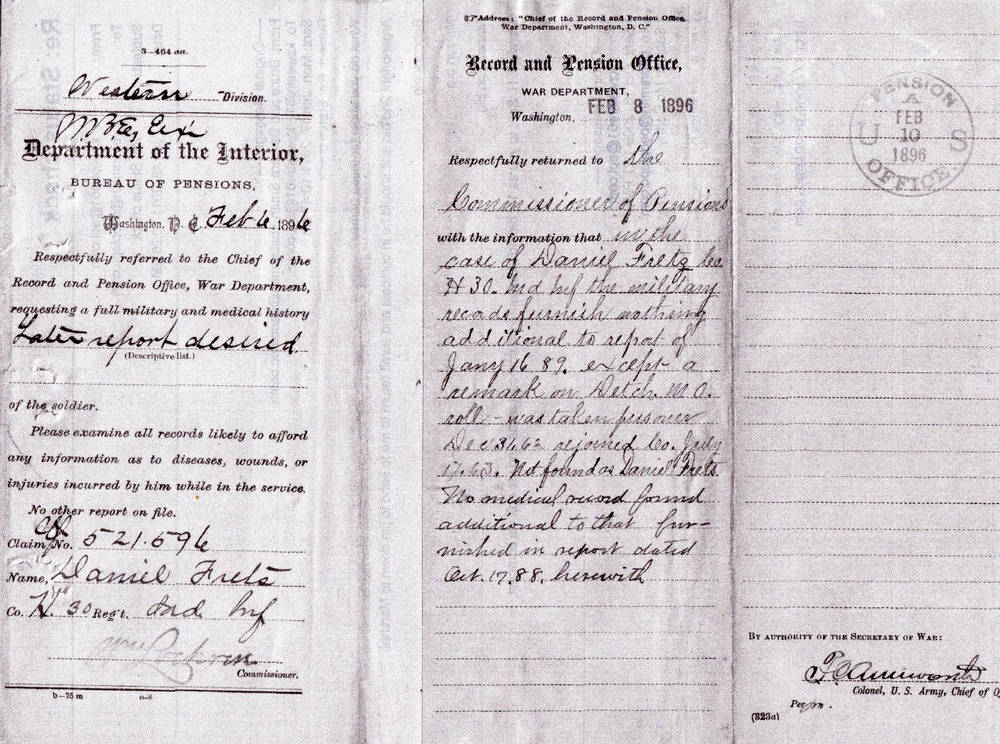 3—464 aa.
Western Division.
Department of the Interior,
BUREAU OF PENSIONS,
Washington, D. C. Feb 6, 1896
Respectfully referred to the Chief of the
Record and Pension Office, War Department,
requesting a full military and medical history
Later report desired
(Descriptive list.)
of the soldier.
Please examine all records likely to afford
any information as to diseases, wounds, or
injuries incurred by him while in the service.
No other report on file.
Claim No. 521.596
Name, Daniel Frets
Co. H. 30 Reg't. Ind Inf
Wm Lochren
Commissioner.
b—75 m o—8
Address: "Chief of the Record and Pension Office,
War Department, Washington, D. C."
Record and Pension Office,
WAR DEPARTMENT,
Washington, FEB 8 1896
Respectfully returned to the
Commissioner of Pensions
with the information that in the
case of Daniel Fretz Co
H 30. Ind Inf the military
records furnish nothing
additional to report of
Jany 16 89. except a
remark on Detch. M.O.
roll - was taken prisoner
Dec 31, 62 rejoined Co. July
17. 63. Not found as Daniel Frets.
No medical record found
additional to that fur-
nished in report dated
Oct. 17, 88, herewith
PENSION
A
FEB
U 10 S
1896
OFFICE.
BY AUTHORITY OF THE SECRETARY OF WAR:
F C Ainsworth
Colonel, U. S. Army, Chief of O
Per
(323a)